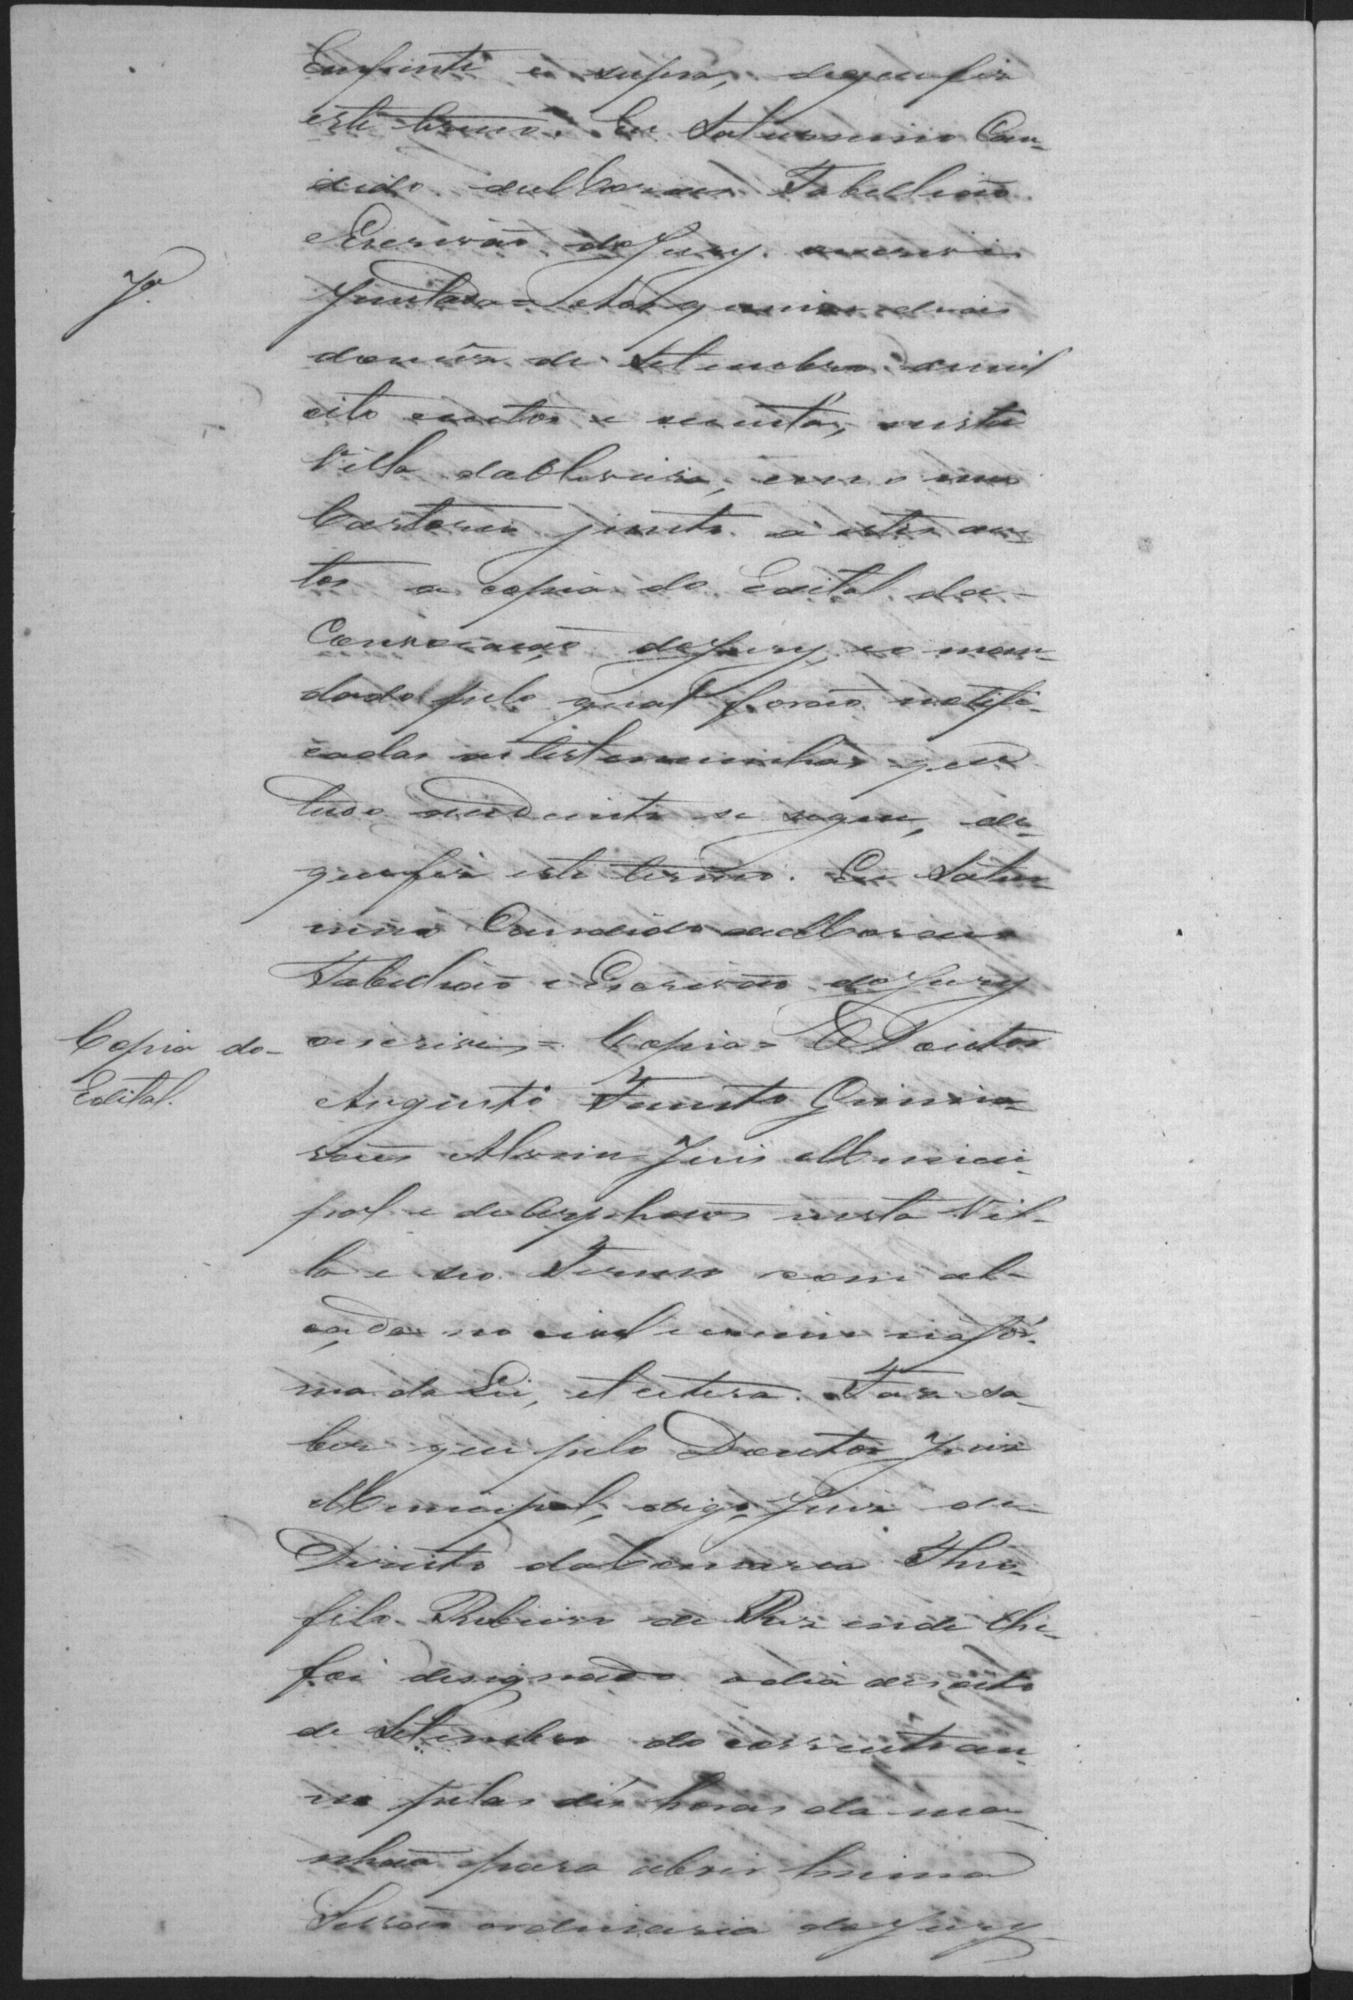 Emfronte e supra, de que fiz
este termo. Eu Saturnino Can-
dido de Moraes Tabellião
e Escrivão do Jury escrevi
Jª.
Juntada = Aos quinze dias
do mez de Setembro de mil
oito centos e setenta, nesta
Villa da Oliveira, em o meu
Cartorio junto a estes au-
tos a copia do Edital da
Convocação do Jury, e o man-
dado pelo qual forão notifi-
cadas as testemunhas que
tudo adiante se segue, de
que fiz este termo. Eu Satur-
nino Candido de Moraes
Tabellião e Escrivão do Jury
Copia do
Edital.
o escrevi = Copia = O Doutor
Augusto Fausto Guima-
raes Alvim Juis Munici-
pal e de Orphaos nesta Vil-
la e seo Termo com al-
çada no civel e crime na for-
ma da Lei, et cetera. Faz sa-
ber que pelo Doutor Juiz
Municipal, digo, Juiz de
Direito da Comarca Theo-
filo Ribeiro de Rezende lhe
foi designado o dia desoito
de Setembro do corrente an-
no pelas dés horas da ma-
nhaã para abrir huma
Sessão ordinaria do Jury